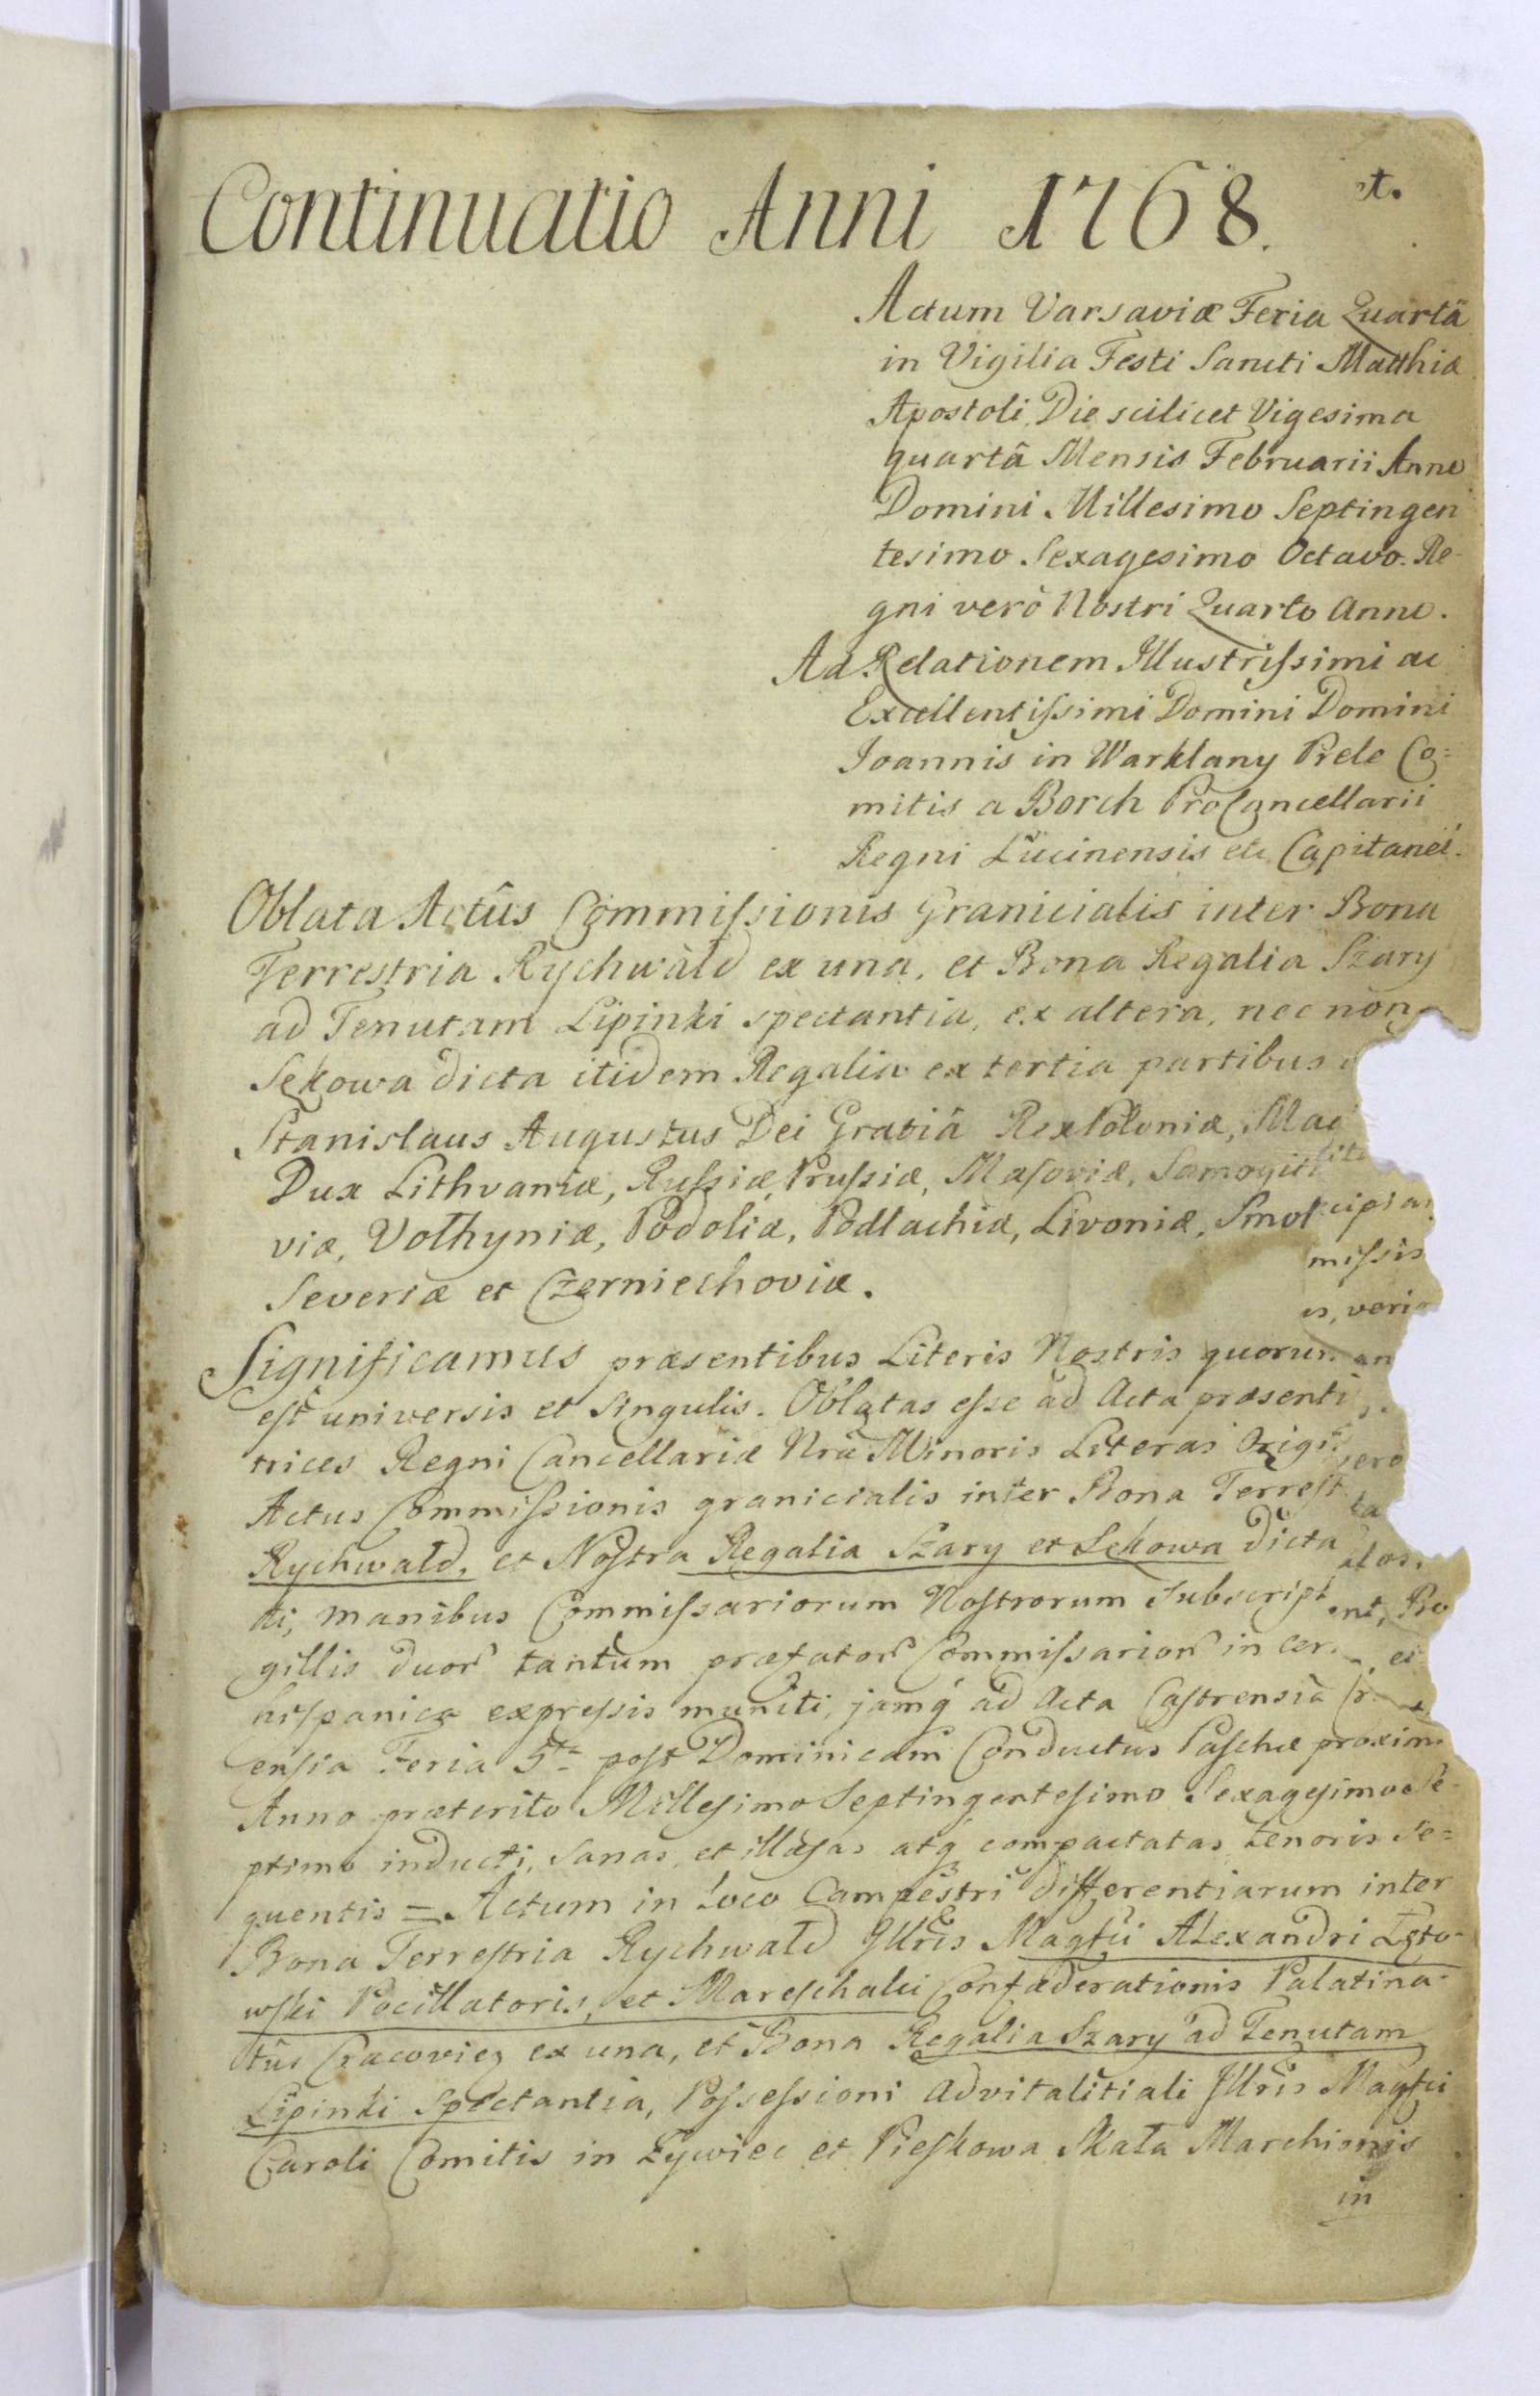 Continuatio Anni 1768.
Actum Varsaviæ Feria Quartâ
in Vigilia Festi Sancti Matthiæ
Apostoli, Die scilicet Vigesima
quartâ Mensis Februarii Anno
Domini Millesimo Septingen
tesimo Sexagesimo Octavo. Re-
gni verò Nostri Quarto Anno.
Ad Relationem Illustrissimi ac
Excellentissimi Domini Domini
Joannis in Warklany Prele Co=
mitis a Borch ProCancellarii
Regni Lucinensis etc Capitanei.
Oblata Actûs Commissionis Granicialis inter Bona
Terrestria Rychwałd ex una, et Bona Regalia Szary
ad Tenutam Lipinki spectantia, ex altera, nec non
Sękowa dicta itidem Regalia ex tertia partibus
Stanislaus Augustus Dei Gratiâ Rex Poloniæ, Mag
Dux Lithvaniæ, Russiæ, Prussiæ, Masoviæ, Samogit
viæ, Volhyniæ, Podoliæ, Podlachiæ, Livoniæ, Smol
missis
Severiæ et Czerniechoviæ.
Significamus præsentibus Literis Nostris quorum
est universis et singulis. Oblatas esse ad Acta præsenti
trices Regni Cancellariæ Nræ Minoris Literas Origi
Actus Commissionis granicialis inter Bona Terrest
Rychwałd, et Nostra Regalia Szary et Sękowa dicta
di, manibus Commissariorum Nostrorum subscript
gillis duor tantum præfator Commissarior in cer
hispanica expressis muniti, jamq ad Acta Castrensia Cr
censia Feria 5ta post Dominicam Conductus Paschæ proxim
Anno præterito Millesimo Septingentesimo Sexagesimo Se-
ptimo inducti, sanas, et illæsas atq compactatas tenoris se=
quentis = Actum in Loco Campestri differentiarum inter
Bona Terrestria Rychwałd Jllris Magfci Alexandri Łęto-
wski Pocillatoris, et Mareschalci Confæderationis Palatina-
tûs Cracovien ex una, et Bona Regalia Szary ad Tenutam
Lipinki Spectantia, Possessioni Advitalitiali Jllris Magfci
Caroli Comitis in Żywiec et Pieskowa Skała Marchionis
in